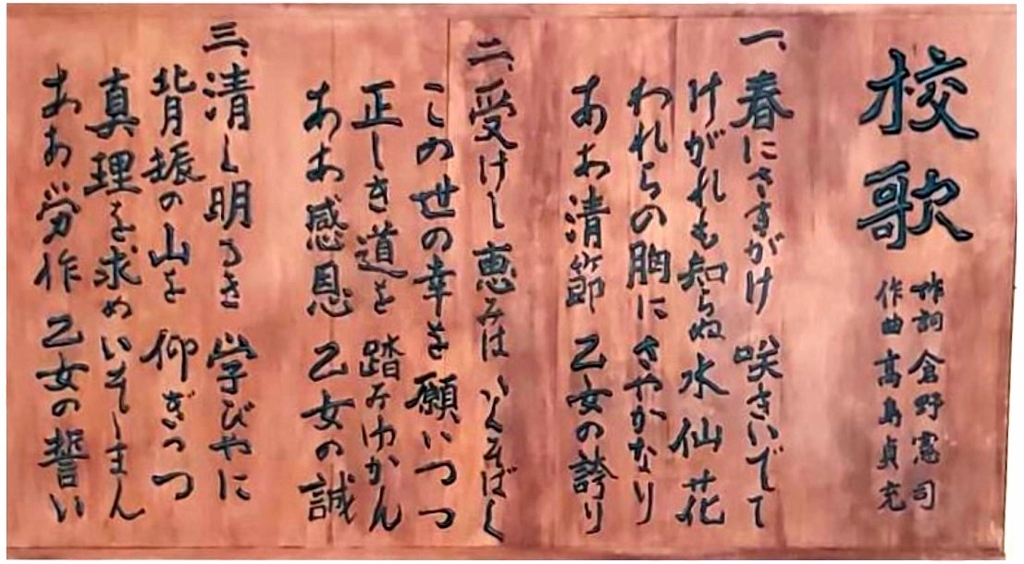 校歌
作詞 倉野憲司
作曲 高島貞充
一、春にさきがけ 咲きいでて
けがれも知らぬ水仙花
われらの胸に さやかなり
ああ清節 乙女の誇り
二、受けし恵みは いくそばく
この世の幸を 願いつつ
正しき道を 踏みゆかん
ああ感恩 乙女の誠
三、清く明るき 学びやに
背振の山を 仰ぎつつ
真理を求め いそしまん
ああ労作 乙女の誓い